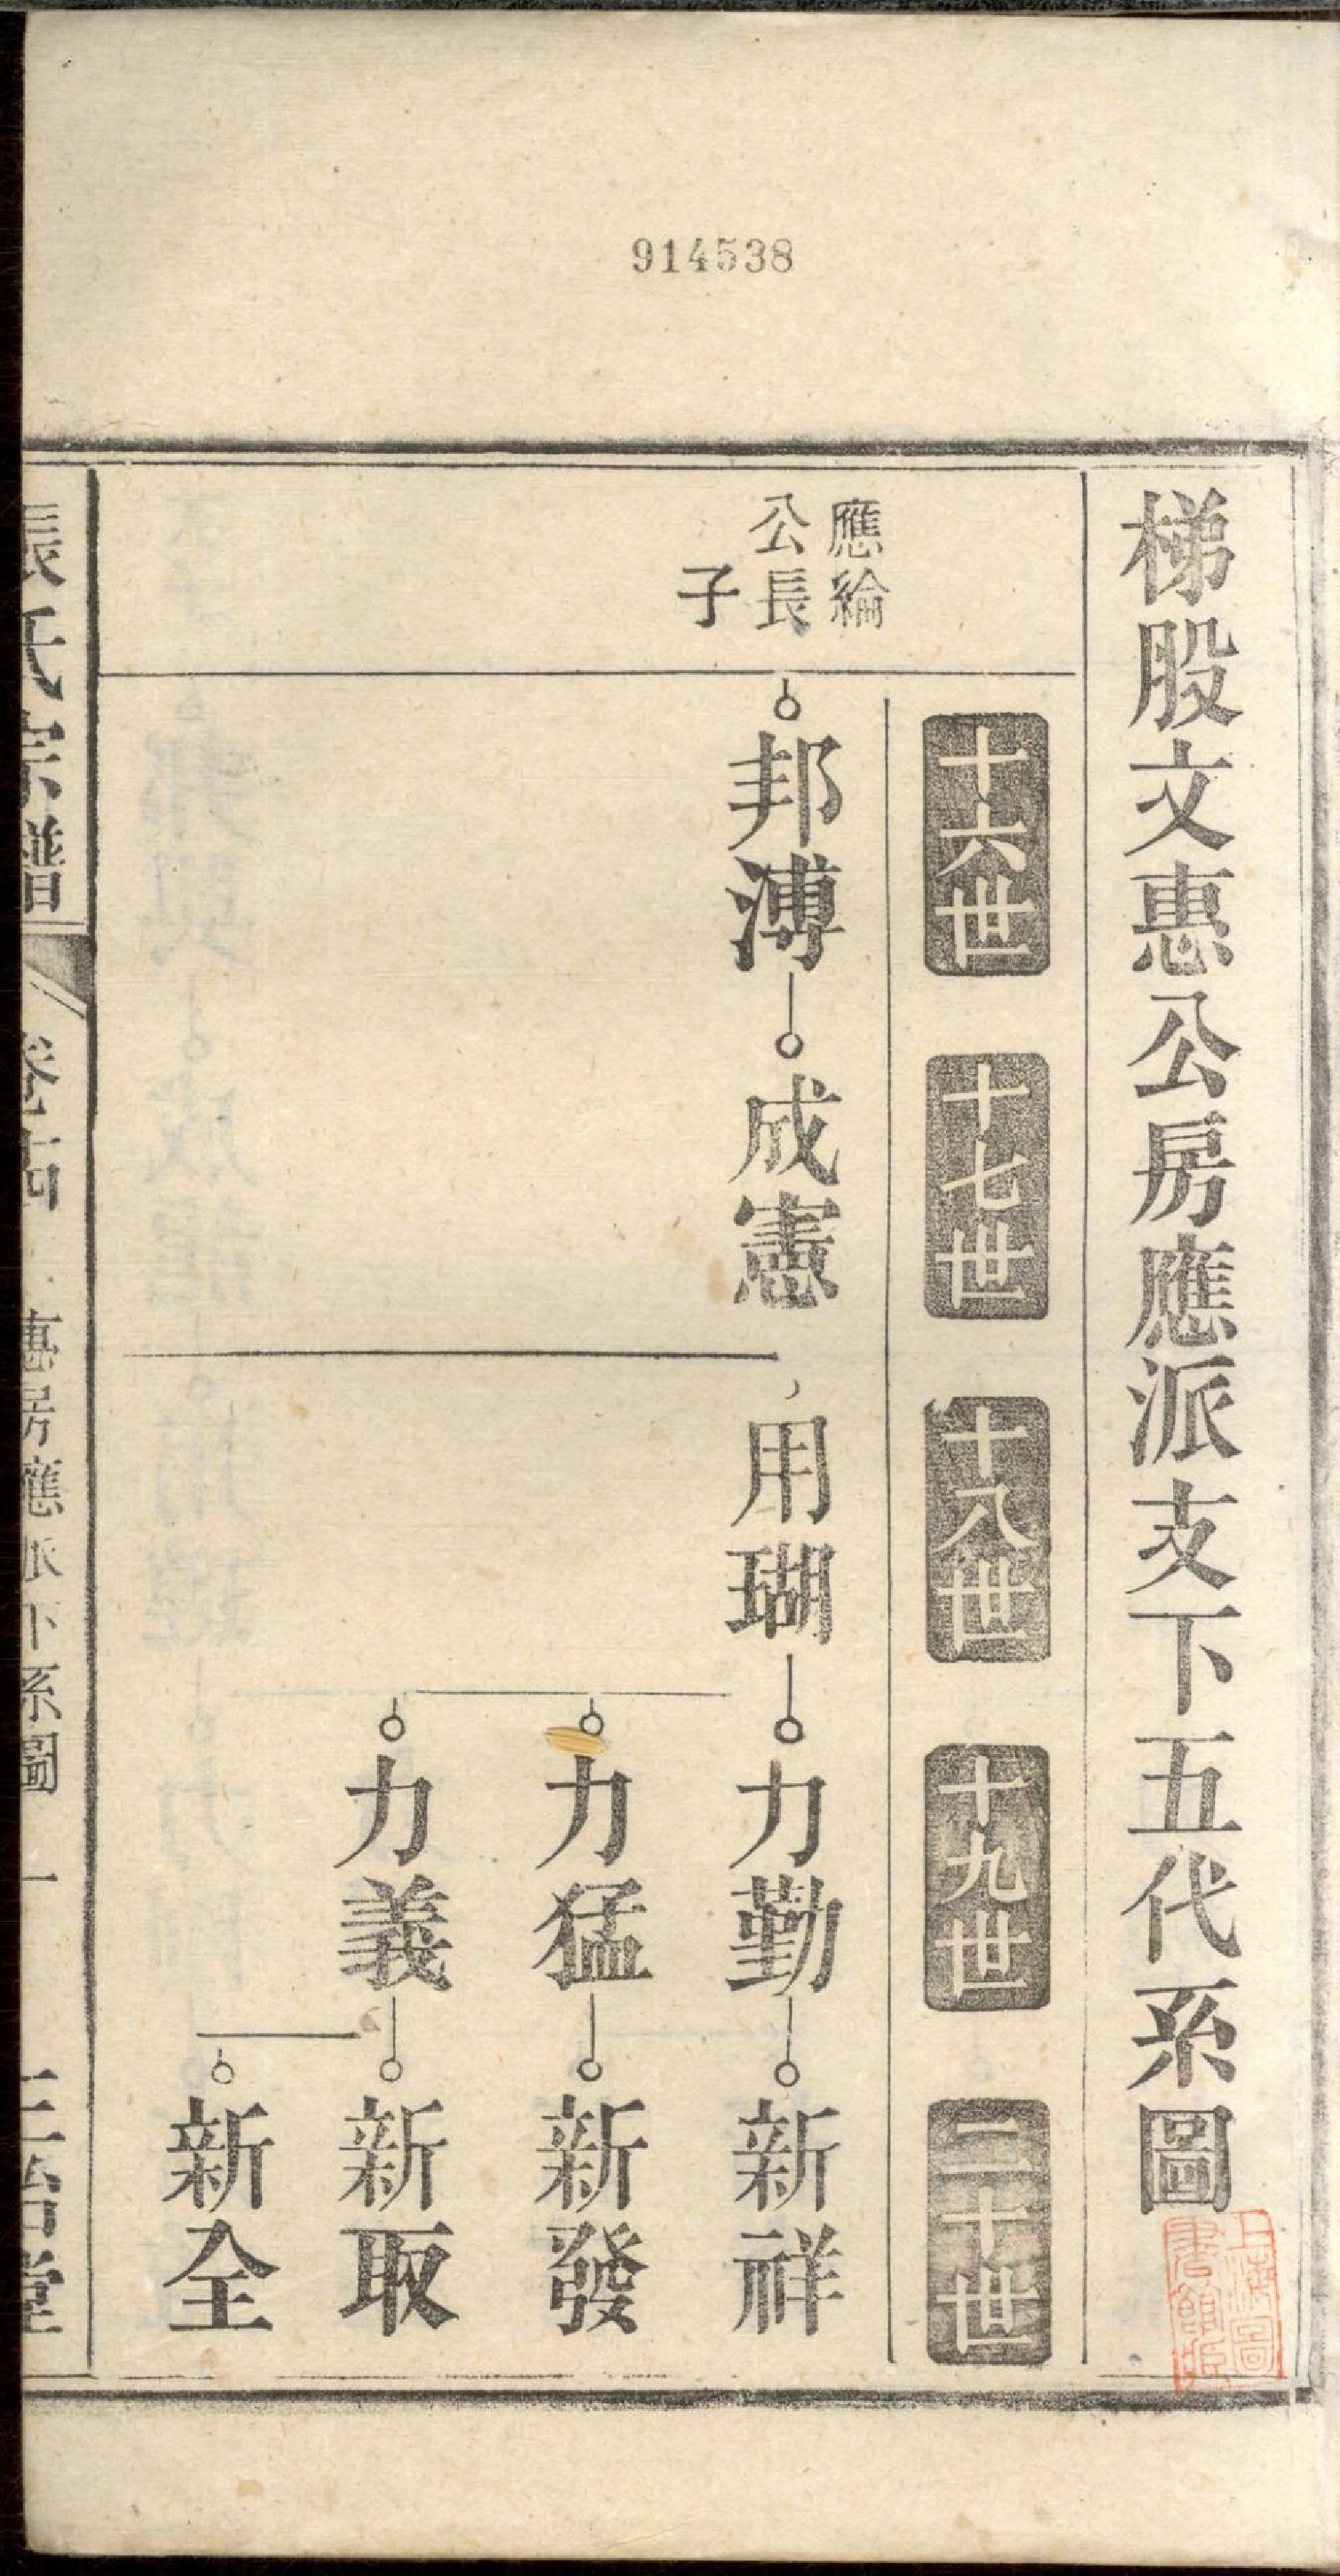 914538
梯股文惠公房應派支下五代系圖
上海圖
書館藏
十六世
十七世
十八世
十九世
二十世
應綸
公長
子
邦溥
成憲
用瑚
力勤
新祥
力猛
新發
力義
新取
新全
張氏宗譜
卷十四
惠房應派下系圖
一
三治堂